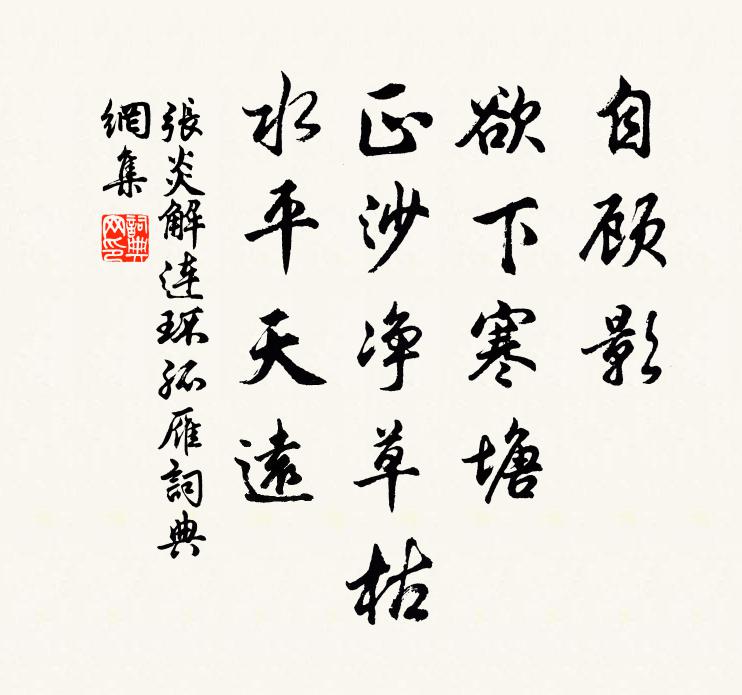 自顾影
欲下寒塘
正沙净草枯
水平天遠
張炎解連环孤雁詞典
網集
詞典
网印